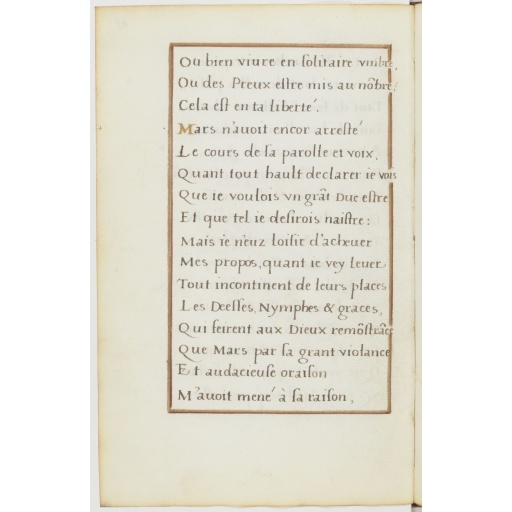 Ou bien viure en ſolitaire vmbre,
Ou des Preux eſtre mis au nõbre:
Cela eſt en ta liberté.
Mars n'auoit encor arreſté
Le cours de ſa parolle et voix,
Quant tout hault declarer ie vois
Que ie voulois vn grãt Duc eſtre
Et que tel ie deſirois naiſtre:
Mais ie n'euz loiſir d'acheuer
Mes propos, quant ie vey leuer
Tout incontinent de leurs places
Les Deeſſes, Nymphes & graces,
Qui feirent aux Dieux remõſtrãce
Que Mars par ſa grant violance
Et audacieuſe oraiſon
M'auoit mené à ſa raiſon,